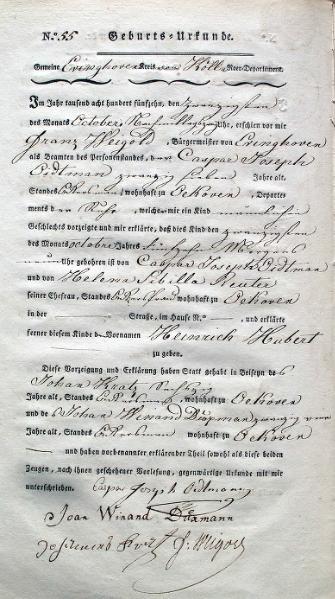 N.º 55 Geburts-Urkunde.
Gemeine Evinghoven Kreis von Kölln Roer-Departement.
Im Jahr tausend acht hundert fünfzehn, den zwanzigsten
des Monats October, Nachmittags Uhr, erschien vor mir
Franz Weigold, Bürgermeister von Evinghoven
als Beamten des Personenstandes, der Caspar Joseph
Oidtman zwanzig sieben Jahre alt,
Standes wohnhaft zu Oekoven, Departe-
ments der Ruhr, welcher mir ein Kind männlichen
Geschlechts vorzeigte und mir erklärte, daß dies Kind den zwanzigsten
des Monats octobre Jahres fünfzehn Morgens
neun Uhr gebohren ist von Caspar Joseph Oidtman
und von Helena Sibilla Reuter
seiner Ehefrau, Standes wohnhaft zu Oekoven
in der Straße, im Hause N.º und erklärte
ferner diesem Kinde die Vornamen Heinrich Hubert
zu geben.
Diese Vorzeigung und Erklärung haben Statt gehabt in Beiseyn des
Johan Kratz Sechszig
Jahre alt, Standes wohnhaft zu Oekoven
und des Johan Winand Düxman zwanzig
Jahre alt, Standes wohnhaft zu Oekoven
und haben vorbenannter erklärender Theil sowohl als diese beiden
Zeugen, nach ihnen geschehener Vorlesung, gegenwärtige Urkunde mit mir
unterschrieben. Caspar Joseph Oidtmann
Joan Winand Düxmann